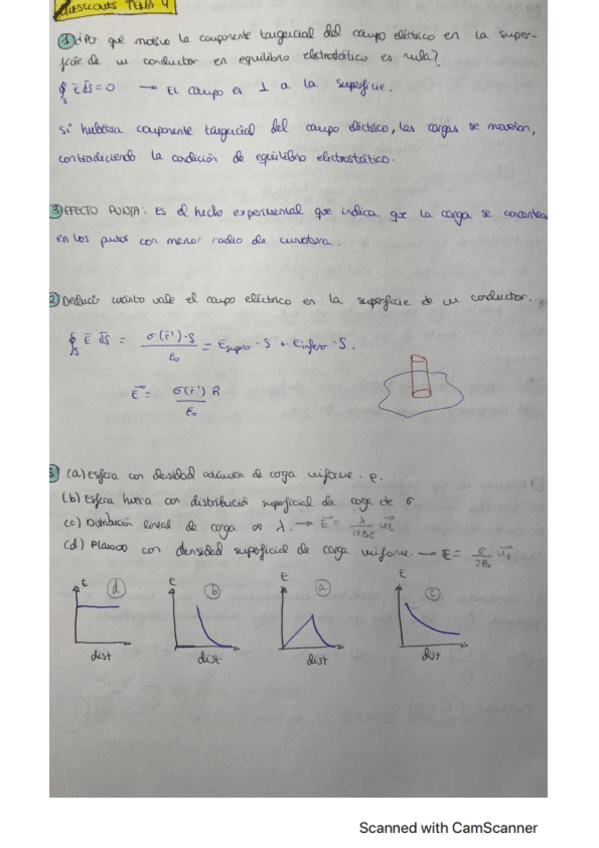 CUESTIONES TEMA 4
① ¿Por qué motivo la componente tangencial del campo eléctrico en la super-
ficie de un conductor en equilibrio electrostático es nula?
∮s Ē d̄S = 0 → El campo es ⊥ a la superficie.
Si hubiera componente tangencial del campo eléctrico, las cargas se moverían,
contradiciendo la condición de equilibrio electrostático.
③ EFECTO PUNTA: Es el hecho experimental que indica que la carga se concentra
en los puntos con menor radio de curvatura.
② Deducir cuánto vale el campo eléctrico en la superficie de un conductor.
∮s Ē d̄S = σ(r̄')·S / ε₀ = E · S + E · S.
E⃗ = σ(r̄') n̂ / ε₀
⑤ (a) Esfera con densidad de carga uniforme. ρ.
(b) Esfera hueca con distribución superficial de carga de σ
(c) Distribución lineal de carga ∞ λ. → E⃗ =
(d) Plano ∞ con densidad superficial de carga uniforme. → E = σ / 2ε₀
E ⓓ E ⓑ E ⓐ E ⓒ
dist dist dist dist
Scanned with CamScanner